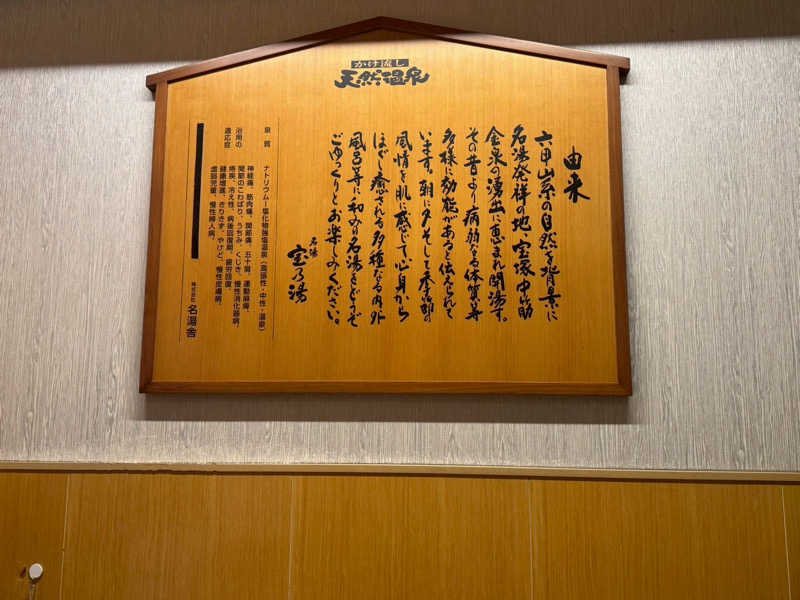 かけ流し
天然温泉
由来
六甲山系の自然を背景に
名湯発祥の地、宝塚中山筋
金泉の湧出に恵まれ開湯す。
その昔より病効なる体質等
多様に効能があると伝えられて
います。朝に夕そして季節の
風情を肌に感じて心身から
ほぐし癒される多種なる内外
風呂等に和み名湯をどうぞ
ごゆっくりとお楽しみください。
名湯
宝乃湯
泉質 ナトリウム-塩化物強塩温泉(高張性・中性・温泉)
浴用の
適応症
神経痛、筋肉痛、関節痛、五十肩、運動麻痺、
関節のこわばり、うちみ、くじき、慢性消化器病、
痔疾、冷え性、病後回復期、疲労回復、
健康増進、きりきず、やけど、慢性皮膚病、
虚弱児童、慢性婦人病、
株式会社 名湯舎